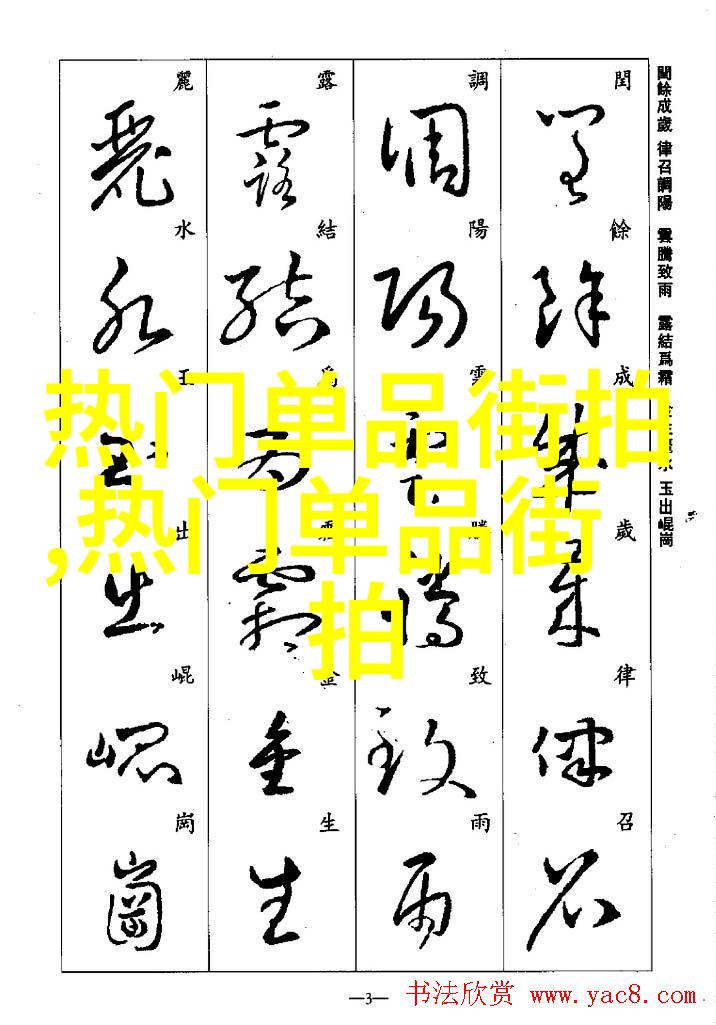 閏餘成歲 律召調陽 雲騰致雨 露結爲霜 金生麗水 玉出崐崗
閏餘成歲律召
調陽雲騰致雨
露結爲霜金生
麗水玉出崐崗
热门单品街拍
,热门单品街
拍
—3—
书法欣赏 www.yac8.com